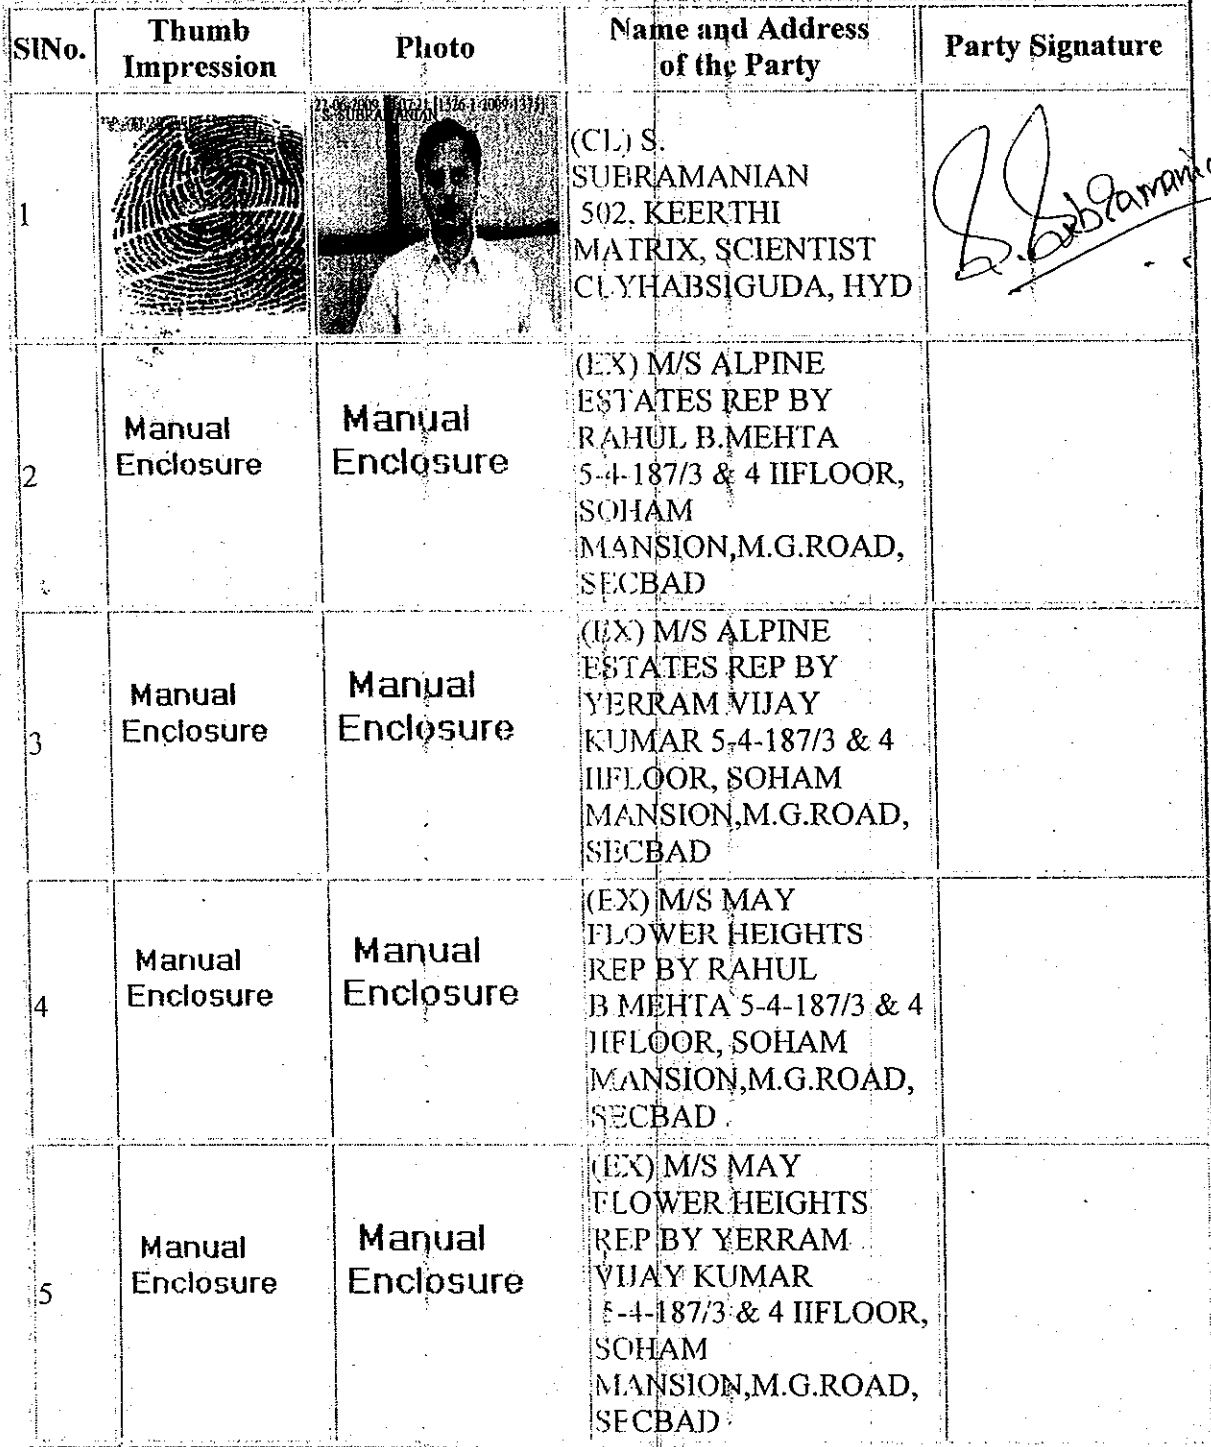 SlNo.
Thumb
Impression
Photo
Name and Address
of the Party
Party Signature
1
S. SUBRAMANIAN
(CL) S.
SUBRAMANIAN
502, KEERTHI
MATRIX, SCIENTIST
CLYHABSIGUDA, HYD
S. Subramania
2
Manual
Enclosure
Manual
Enclosure
(EX) M/S ALPINE
ESTATES REP BY
RAHUL B.MEHTA
5-4-187/3 & 4 IIFLOOR,
SOHAM
MANSION,M.G.ROAD,
SECBAD
3
Manual
Enclosure
Manual
Enclosure
(EX) M/S ALPINE
ESTATES REP BY
YERRAM VIJAY
KUMAR 5-4-187/3 & 4
IIFLOOR, SOHAM
MANSION,M.G.ROAD,
SECBAD
4
Manual
Enclosure
Manual
Enclosure
(EX) M/S MAY
FLOWER HEIGHTS
REP BY RAHUL
B.MEHTA 5-4-187/3 & 4
IIFLOOR, SOHAM
MANSION,M.G.ROAD,
SECBAD
5
Manual
Enclosure
Manual
Enclosure
(EX) M/S MAY
FLOWER HEIGHTS
REP BY YERRAM
VIJAY KUMAR
5-4-187/3 & 4 IIFLOOR,
SOHAM
MANSION,M.G.ROAD,
SECBAD